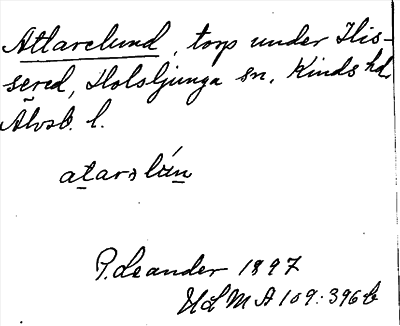 Attarelund, torp under Ilis-
sered, Holsljunga sn, Kinds hd,
Älvsb. l.
atarslún
P. Leander 1897
ULMA 109:396 b